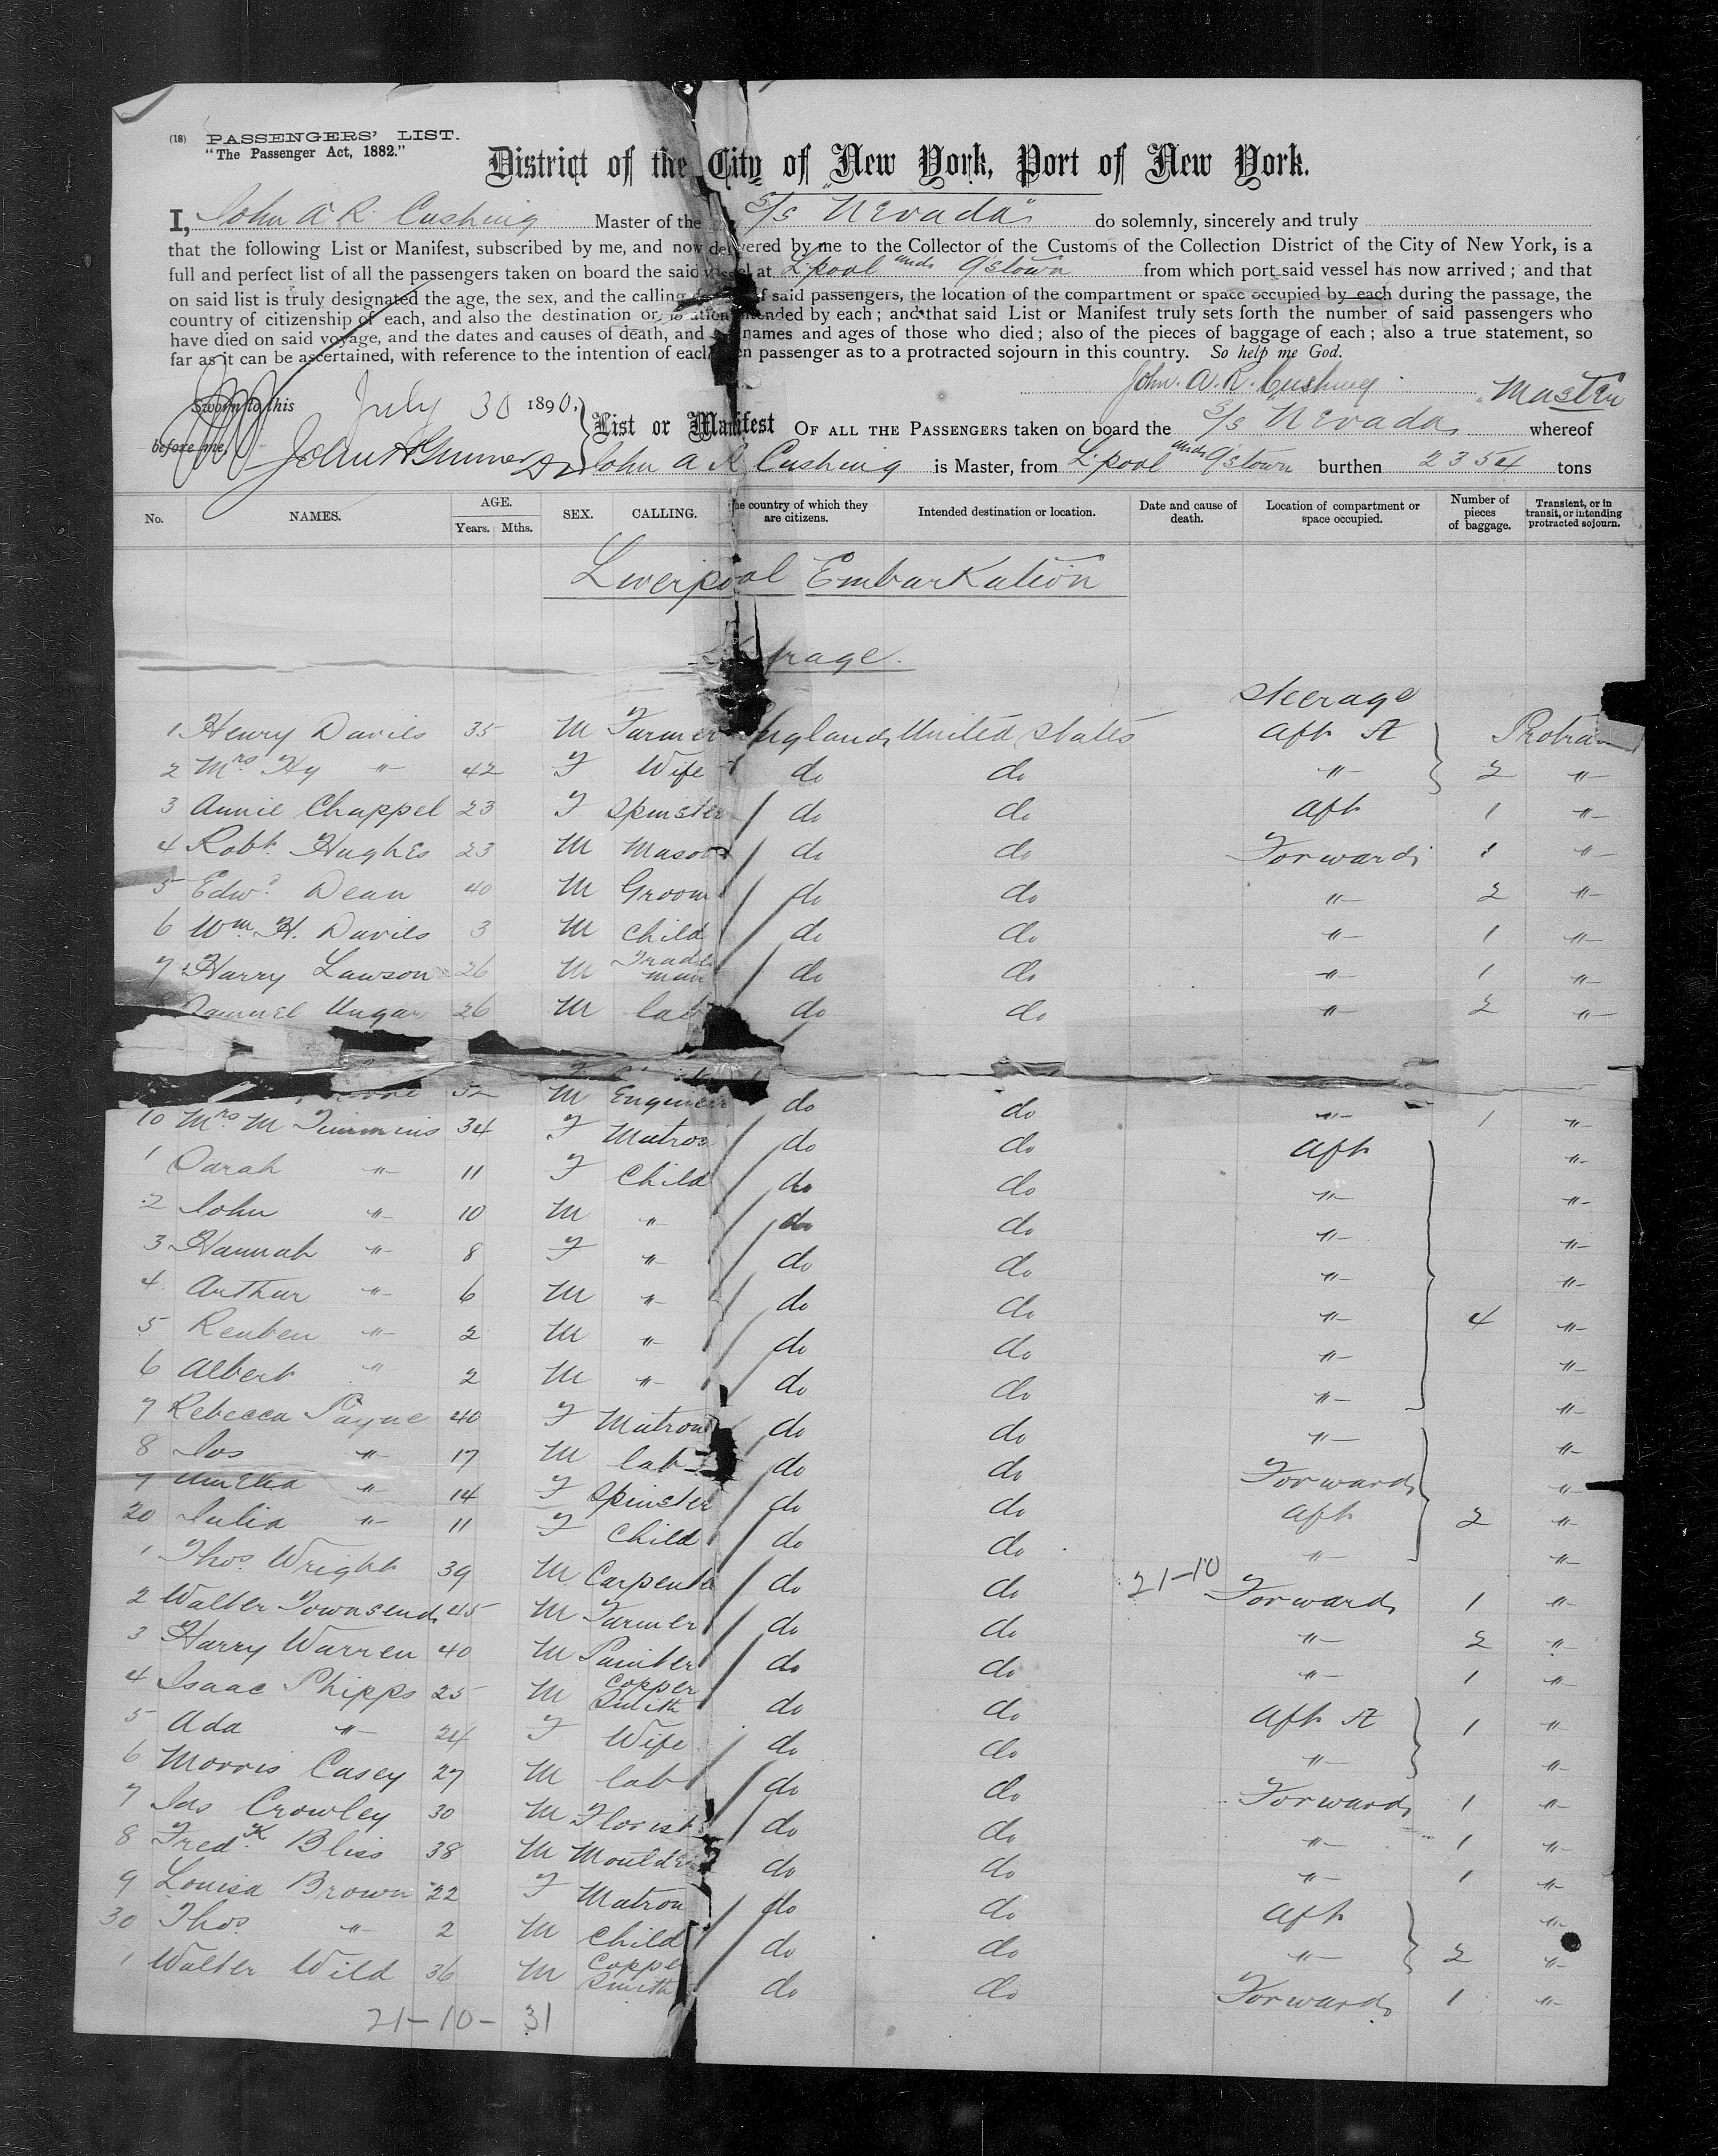 (18) PASSENGERS' LIST.
"The Passenger Act, 1882."
District of the City of New York, Port of New York.
I, John A. R. Cushing Master of the S/S "Nevada" do solemnly, sincerely and truly
that the following List or Manifest, subscribed by me, and now delivered by me to the Collector of the Customs of the Collection District of the City of New York, is a
full and perfect list of all the passengers taken on board the said vessel at L'pool and Q'stown from which port said vessel has now arrived; and that
on said list is truly designated the age, the sex, and the calling of said passengers, the location of the compartment or space occupied by each during the passage, the
country of citizenship of each, and also the destination or location intended by each; and that said List or Manifest truly sets forth the number of said passengers who
have died on said voyage, and the dates and causes of death, and names and ages of those who died; also of the pieces of baggage of each; also a true statement, so
far as it can be ascertained, with reference to the intention of each passenger as to a protracted sojourn in this country. So help me God.
John. A. R. Cushing Master
Sworn to this July 30 1890,
before me
List or Manifest OF ALL THE PASSENGERS taken on board the S/S Nevada whereof
John A R Cushing is Master, from L'pool and Q'stown burthen 2354 tons
No. NAMES. AGE. Years. Mths. SEX. CALLING. The country of which they are citizens. Intended destination or location. Date and cause of death. Location of compartment or space occupied. Number of pieces of baggage. Transient, or in transit, or intending protracted sojourn.
Liverpool Embarkation
rage.
Steerage
1 Henry Davies 35 M Farmer England United States Aft St Protra
2 Mrs Hy " 42 F Wife do do " 2 "
3 Annie Chappel 23 F Spinster do do Aft 1 "
4 Robt. Hughes 23 M Mason do do Forward 1 "
5 Edwd Dean 40 M Groom do do " 2 "
6 Wm H. Davies 3 M Child do do " 1 "
7 Harry Lawson 26 M Trades man do do " 1 "
Samuel Ungar 26 M lab do do " 2 "
52 M Engineer do do " 1 "
10 Mrs M Timmins 34 F Matron do do Aft "
1 Sarah " 11 F Child do do " "
2 John " 10 M " do do " "
3 Hannah " 8 F " do do " "
4 Arthur " 6 M " do do " 4 "
5 Reuben " 2 M " do do " "
6 Albert " 2 M " do do " "
7 Rebecca Payne 40 F Matron do do " "
8 Jos " 17 M lab do do Forward "
9 " 14 F Spinster do do Aft 2 "
20 Julia " 11 F Child do do " "
1 Thos. Wright 39 M Carpenter do do 21-10 Forward 1 "
2 Walter Townsend 45 M Farmer do do " 2 "
3 Harry Warren 40 M Painter do do " 1 "
4 Isaac Phipps 25 M Copper Smith do do Aft St 1 "
5 Ada " 24 F Wife do do " "
6 Morris Casey 27 M lab do do Forward 1 "
7 Jas Crowley 30 M Florist do do " 1 "
8 Fredk Bliss 38 M Moulder do do " 1 "
9 Louisa Brown 22 F Matron do do Aft "
30 Thos. " 2 M Child do do " 2 "
1 Walter Wild 36 M Copper Smith do do Forward 1 "
21-10-31